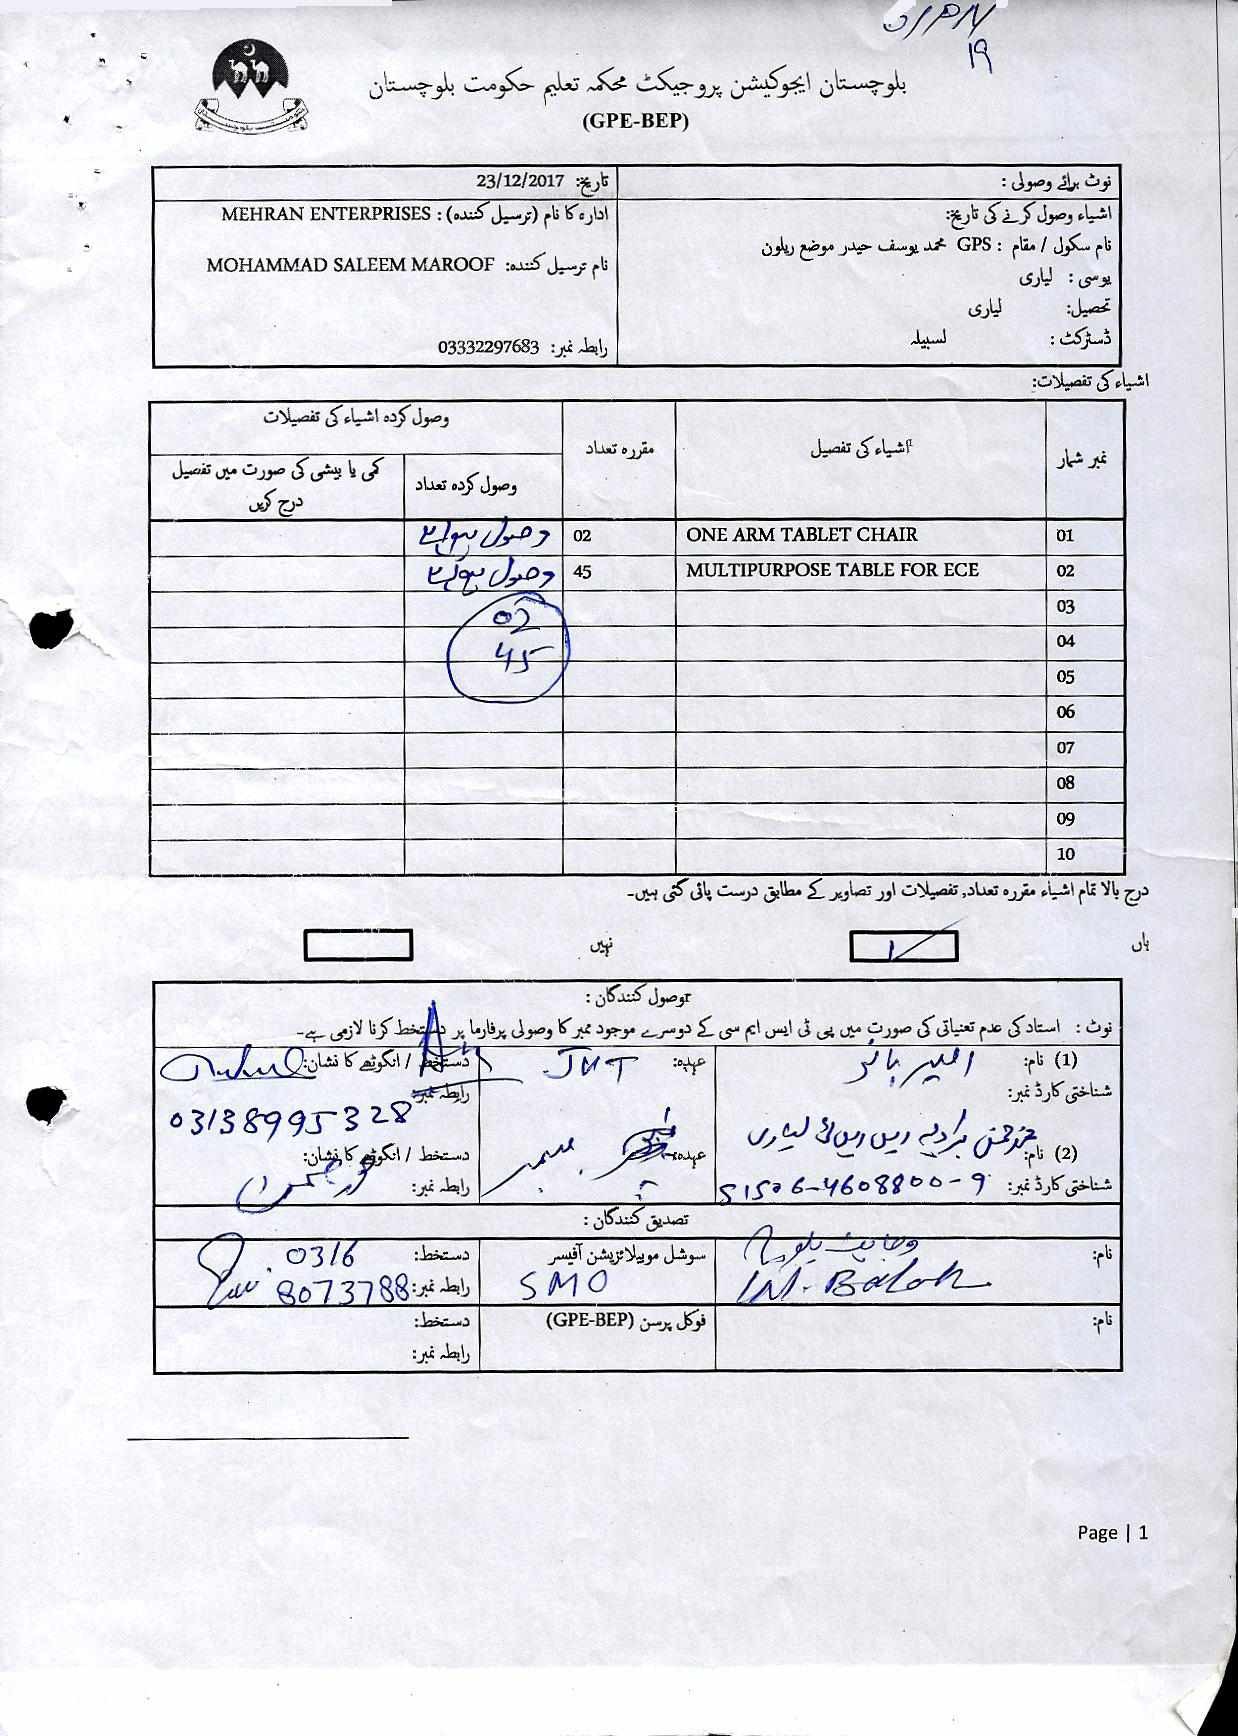 19
بلوچستان ایجوکیشن پروجیکٹ محکمہ تعلیم حکومت بلوچستان
(GPE-BEP)
نوٹ برائے وصولی :
تاریخ: 23/12/2017
اشیاء وصول کرنے کی تاریخ:
نام سکول / مقام : GPS محمد یوسف حیدر موضع ریلون
یوسی : لیاری
تحصیل: لیاری
ڈسٹرکٹ : لسبیلہ
ادارہ کا نام (ترسیل کنندہ) : MEHRAN ENTERPRISES
نام ترسیل کنندہ: MOHAMMAD SALEEM MAROOF
رابطہ نمبر: 03332297683
اشیاء کی تفصیلات:
نمبر شمار
اشیاء کی تفصیل
مقررہ تعداد
وصول کردہ اشیاء کی تفصیلات
وصول کردہ تعداد
کمی یا بیشی کی صورت میں تفصیل
درج کریں
01 ONE ARM TABLET CHAIR 02 وصول ہوئے
02 MULTIPURPOSE TABLE FOR ECE 45 وصول ہوئے
03 02
04 45
05
06
07
08
09
10
درج بالا تمام اشیاء مقررہ تعداد, تفصیلات اور تصاویر کے مطابق درست پائی گئی ہیں۔
ہاں
نہیں
وصول کنندگان :
نوٹ : استاد کی عدم تعنیاتی کی صورت میں پی ٹی ایس ایم سی کے دوسرے موجود ممبر کا وصولی پرفارما پر دستخط کرنا لازمی ہے۔
(1) نام:
عہدہ: JMT
دستخط / انگوٹھے کا نشان:
شناختی کارڈ نمبر:
رابطہ نمبر:
03138995328
(2) نام:
عہدہ: ممبر
دستخط / انگوٹھے کا نشان:
شناختی کارڈ نمبر: 51506-4608800-9
رابطہ نمبر:
تصدیق کنندگان :
نام:
M. Baloch
سوشل موبیلائزیشن آفیسر
SMO
دستخط:
رابطہ نمبر: 0316
8073788
نام:
فوکل پرسن (GPE-BEP)
دستخط:
رابطہ نمبر:
Page | 1